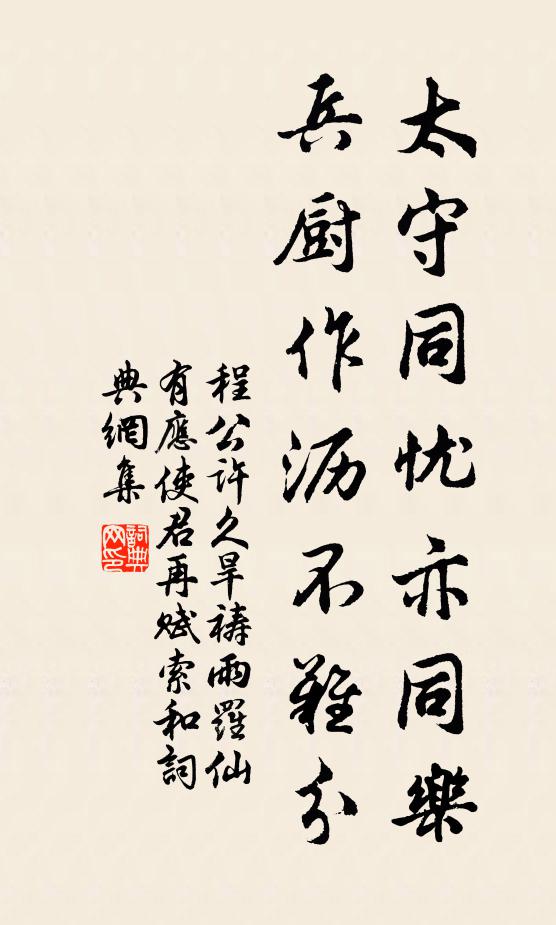 太守同忧亦同樂
兵厨作沥不難分
程公许久旱禱雨羅仙
有應使君再赋索和詞
典網集
詞典網印